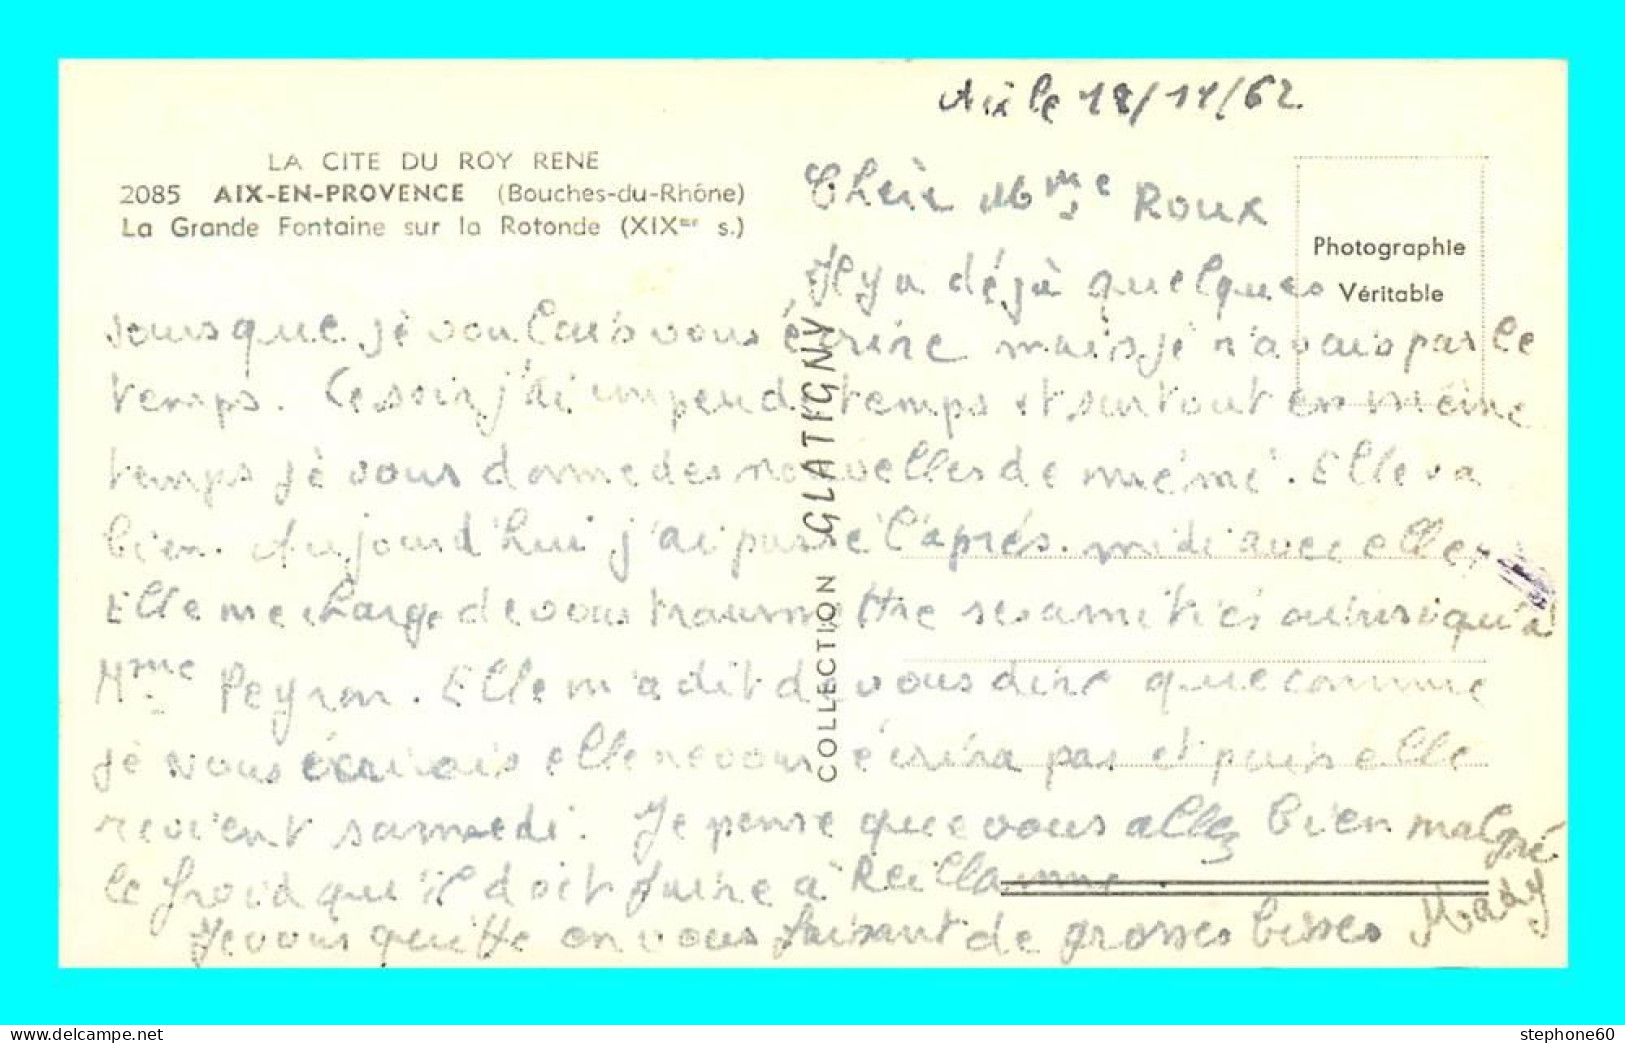 Aix le 18/11/62.
LA CITE DU ROY RENE
2085 AIX-EN-PROVENCE (Bouches-du-Rhône)
La Grande Fontaine sur la Rotonde (XIXme s.)
Photographie
Véritable
COLLECTION GLATIGNY
Chère Mme Roux
Il y a déjà quelques
jours que je voulais vous écrire mais je n'avais pas le
temps. Ce soir j'ai un peu de temps et surtout en même
temps je vous donne des nouvelles de mémé. Elle va
bien. Aujourd'hui j'ai passé l'après-midi avec elle.
Elle me charge de vous transmettre ses amitiés ainsi qu'à
Mme Peyron. Elle m'a dit de vous dire que comme
je vous écrivais elle ne vous écrira pas et puis elle
revient samedi. Je pense que vous allez bien malgré
le froid qu'il doit faire à Reillanne.
Je vous quitte en vous faisant de grosses bises Mady
stephone60
https://www.delcampe.net